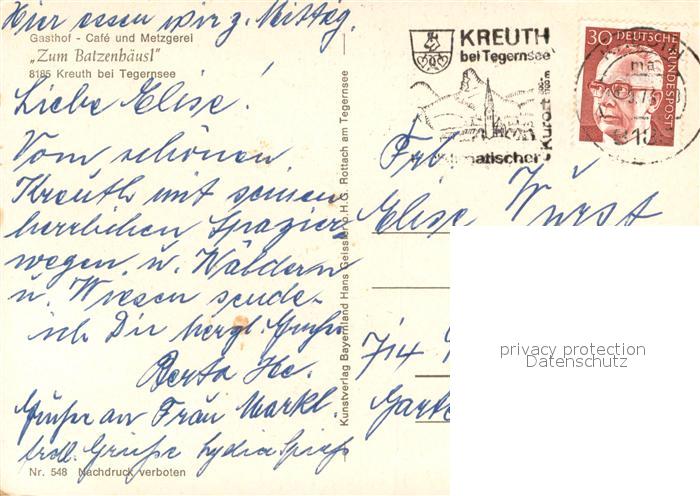 Hier essen wir z. Mittag.
Gasthof - Café und Metzgerei
„Zum Batzenhäusl"
8185 Kreuth bei Tegernsee
Liebe Elise!
Vom schönen
Kreuth mit seinen
herrlichen Spazier-
wegen u. Wäldern
u. Wiesen sende
ich Dir herzl. Grüße
Berta He.
Grüße an Frau Markl.
Grüße Lydia
Nr. 548 Nachdruck verboten
Kunstverlag Bayernland Hans Geissler o.H.G. Rottach am Tegernsee
KREUTH
bei Tegernsee
Kurort
30 DEUTSCHE
BUNDESPOST
Frl.
Elise Wurst
714
privacy protection
Datenschutz